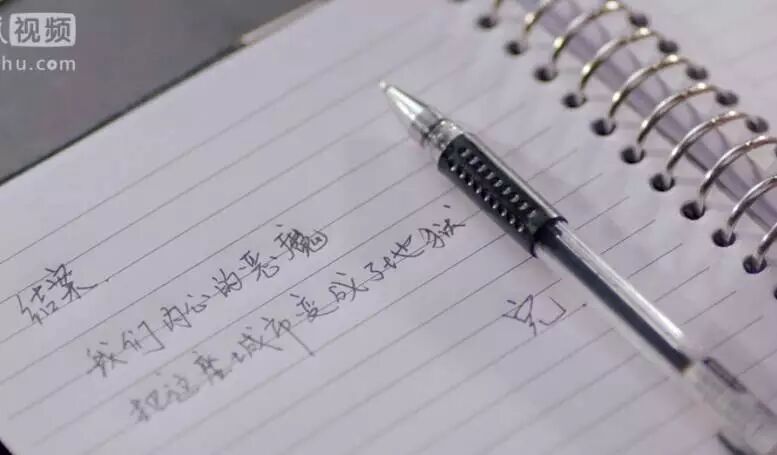 视频
hu.com
结案
我们内心的恶魔
把这座城市变成了地狱
完